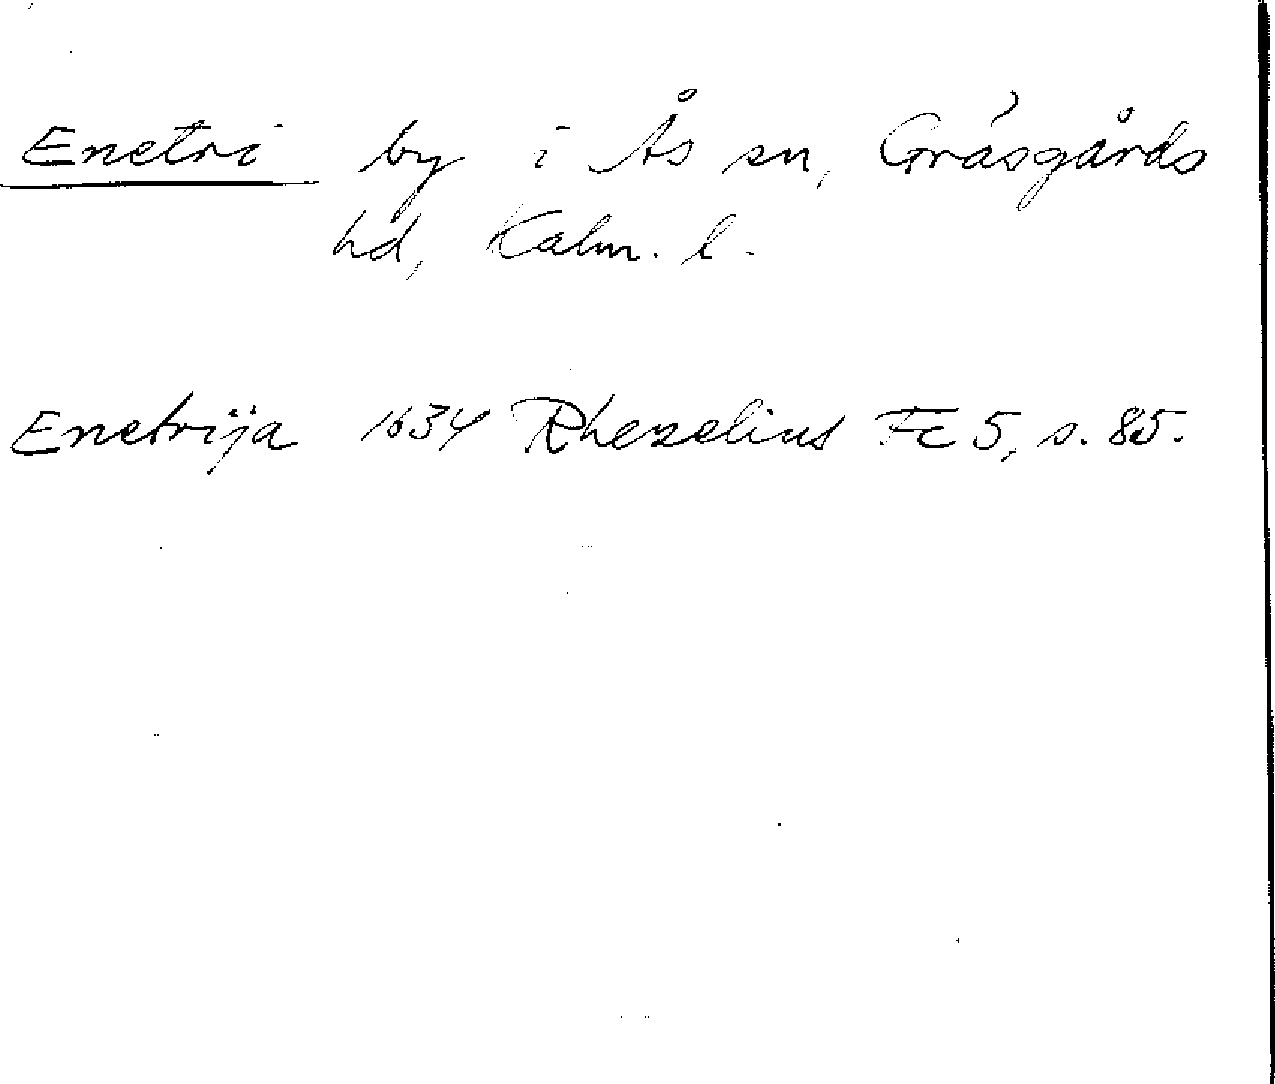 Enetri by i Ås sn, Gräsgårds
hd, Kalm. l.
Enetrija 1634 Rhezelius Fc 5, s. 85.